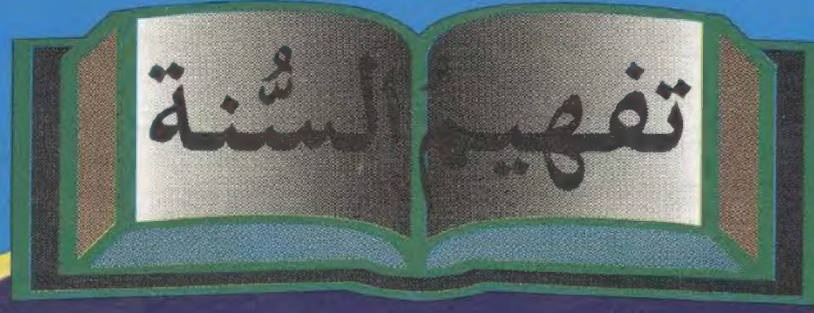 تفهيمُ السُّنة